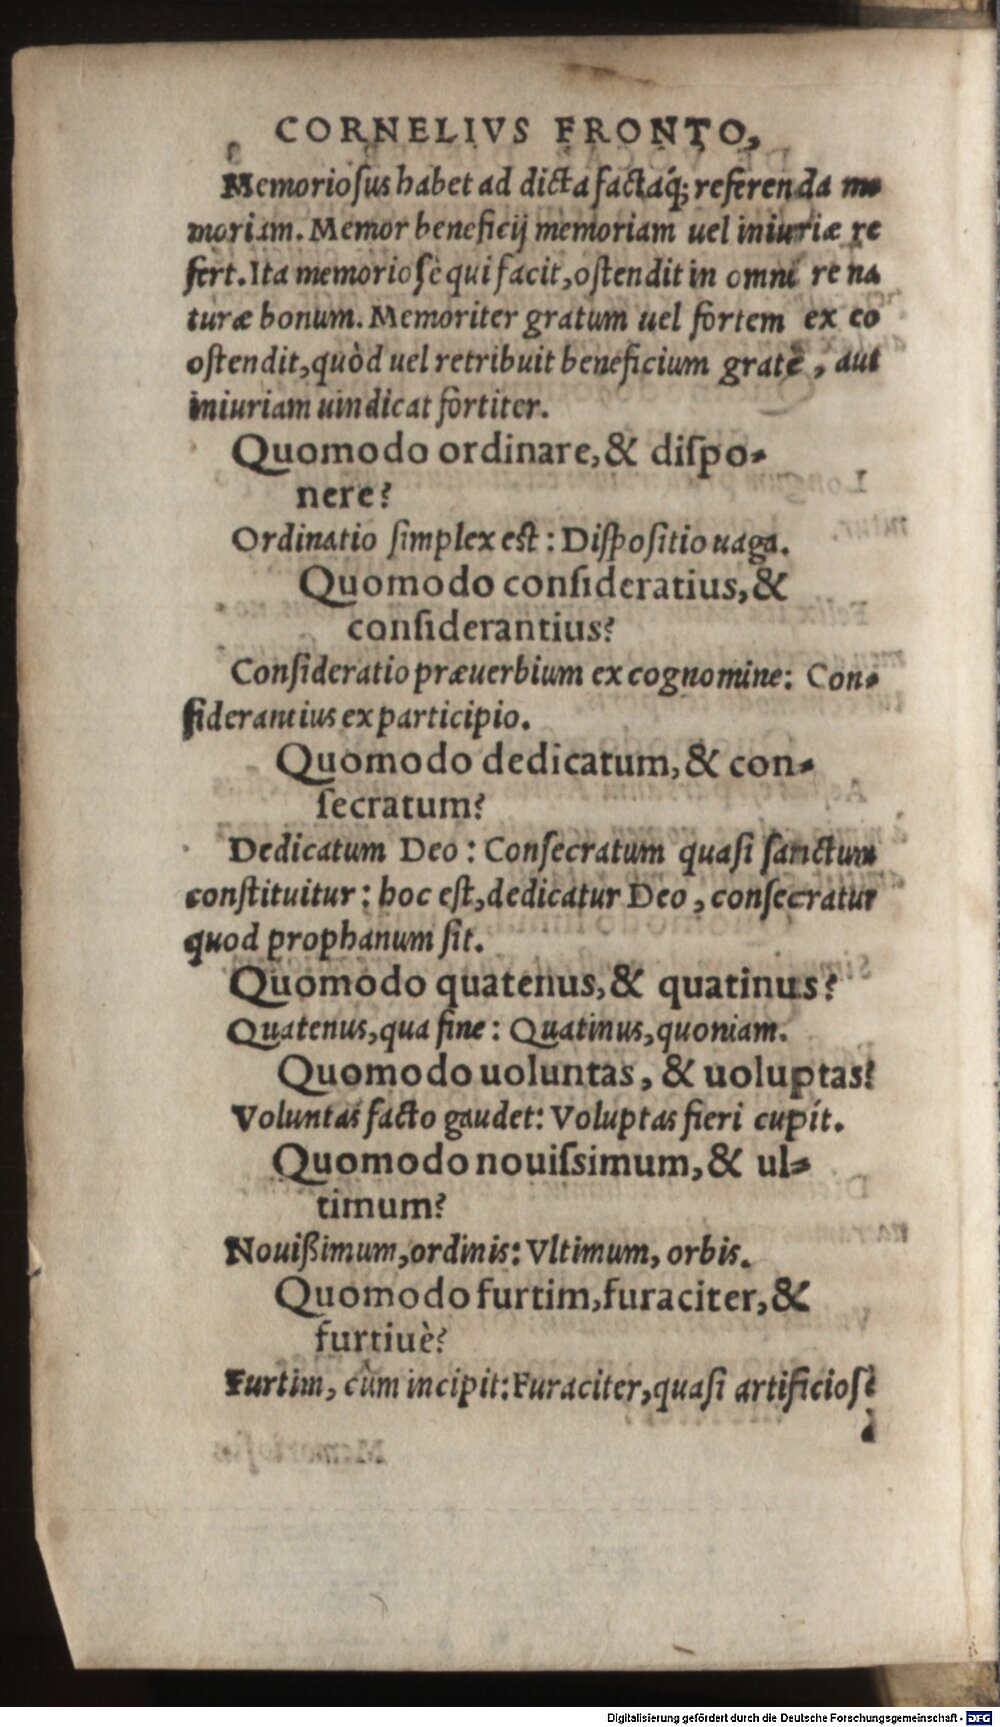 CORNELIVS FRONTO,
Memoriosus habet ad dicta factaq́; referenda me
moriam. Memor beneficij memoriam uel iniuriæ re
fert. Ita memoriosè qui facit, ostendit in omni re na
turæ bonum. Memoriter gratum uel fortem ex eo
ostendit, quòd uel retribuit beneficium gratè, aut
iniuriam uindicat fortiter.
Quomodo ordinare, & dispo-
nere?
Ordinatio simplex est: Dispositio uaga.
Quomodo consideratius, &
considerantius?
Consideratio præuerbium ex cognomine: Con-
siderantius ex participio.
Quomodo dedicatum, & con-
secratum?
Dedicatum Deo: Consecratum quasi sanctum
constituitur: hoc est, dedicatur Deo, consecratur
quod prophanum sit.
Quomodo quatenus, & quatinus?
Quatenus, qua fine: Quatinus, quoniam.
Quomodo uoluntas, & uoluptas?
Voluntas facto gaudet: Voluptas fieri cupit.
Quomodo nouissimum, & ul-
timum?
Nouißimum, ordinis: Vltimum, orbis.
Quomodo furtim, furaciter, &
furtiuè?
Furtim, cùm incipit: Furaciter, quasi artificiosè
Digitalisierung gefördert durch die Deutsche Forschungsgemeinschaft - DFG